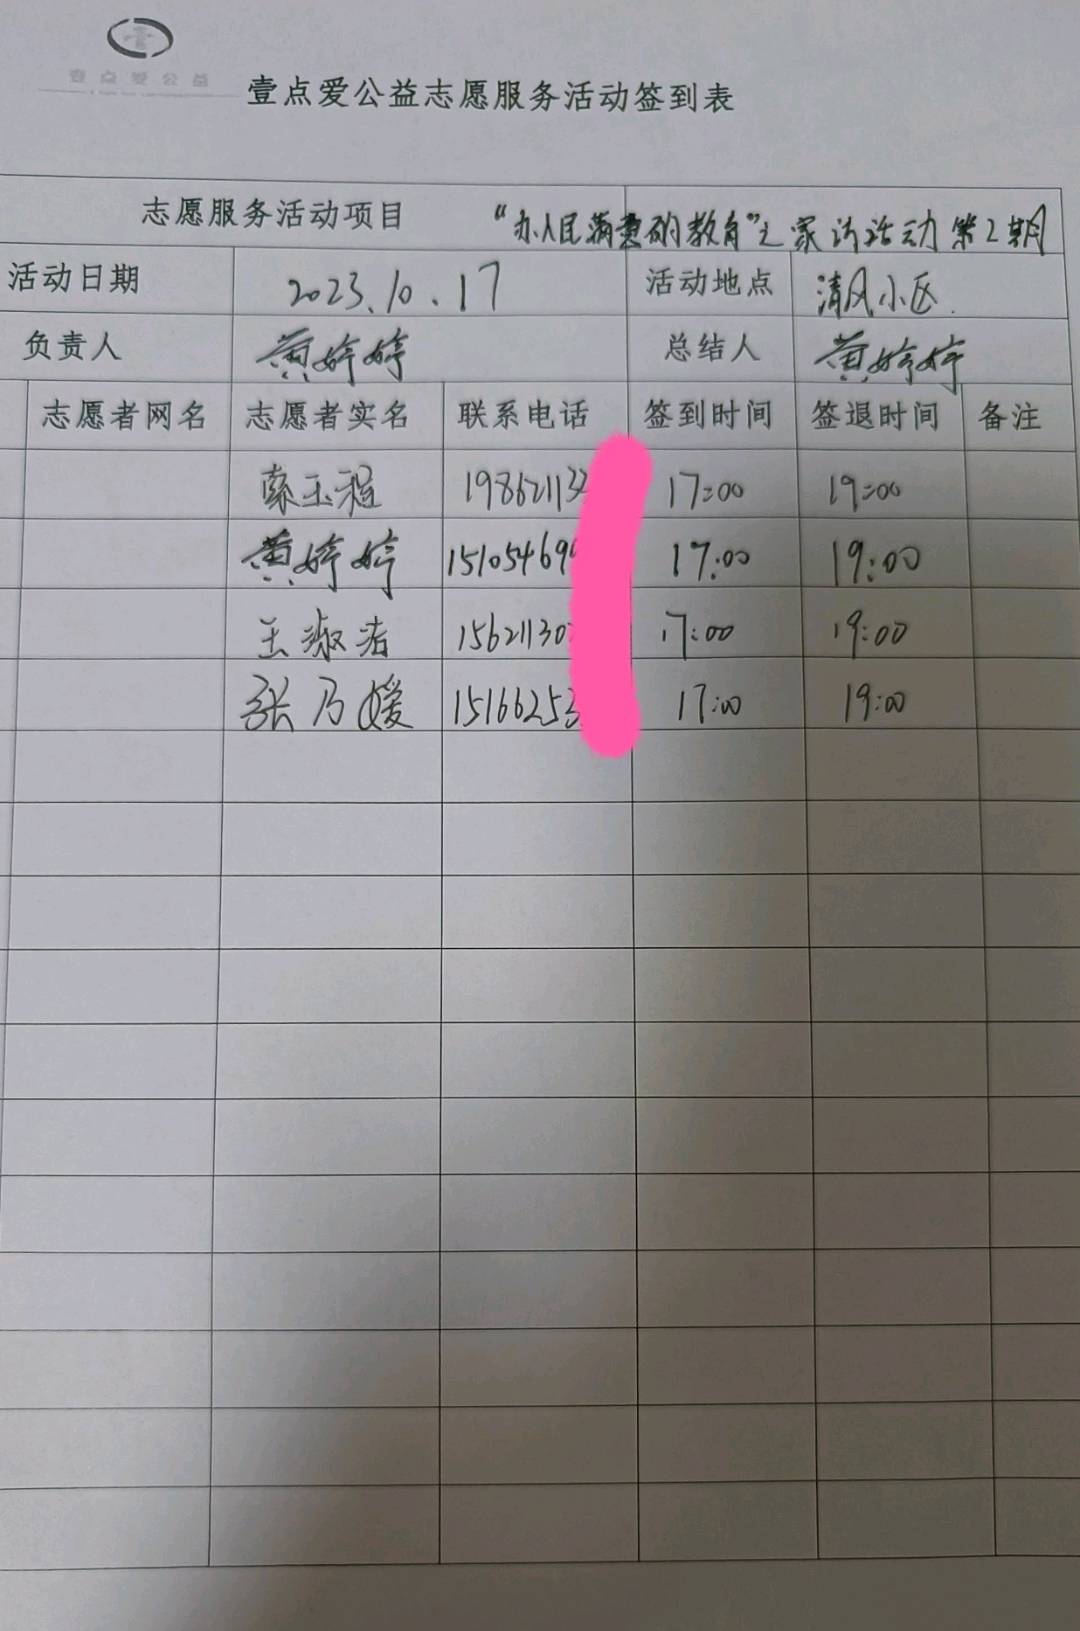 壹点爱公益
壹点爱公益志愿服务活动签到表
志愿服务活动项目 "办人民满意的教育"之家访活动第2期
活动日期 2023.10.17 活动地点 清风小区
负责人 黄婷婷 总结人 黄婷婷
志愿者网名 志愿者实名 联系电话 签到时间 签退时间 备注
索玉程 198621132 17:00 19:00
黄婷婷 151054699 17:00 19:00
王淑洁 156211307 17:00 19:00
张乃媛 15166253 17:00 19:00